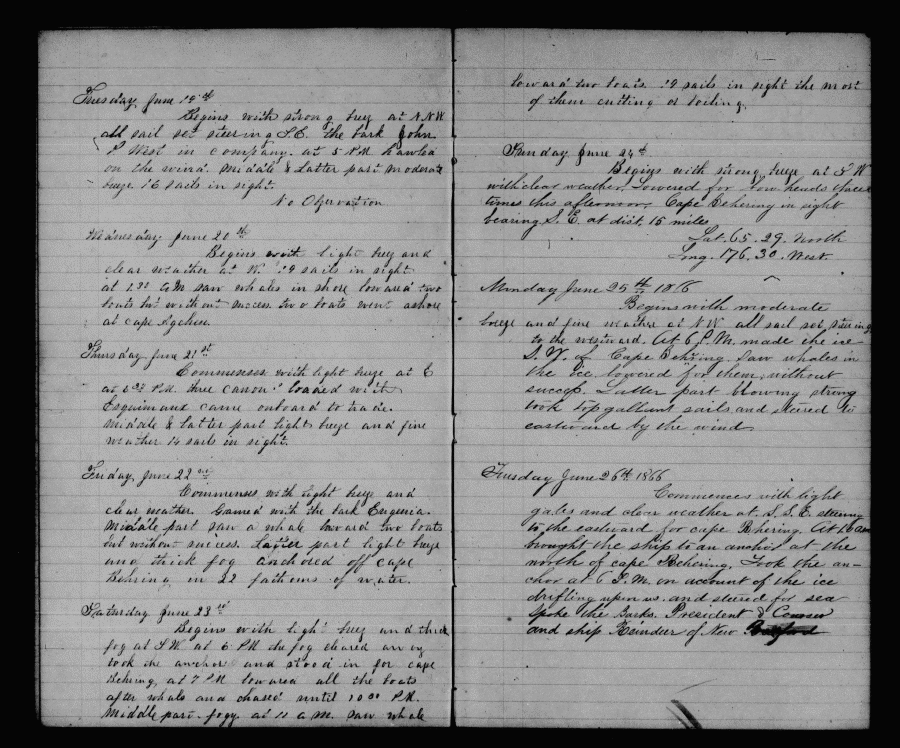 Tuesday June 19th
Begins with strong brez at N.N.W.
all sail set steering S.E. the bark John
P West in company. at 5 P.M. hawled
on the wind. Middle & Latter part moderate
breze 16 sails in sight.
No Observation
Wednesday June 20th
Begins with light brez and
clear weather at W. 19 sails in sight
at A.M. saw whales in shore lowared two
boats but without success. two boats went ashore
at cape
Thursday June 21st
Commenses with light breze at E
at P.M. three canous loaded with
Esquimaud came onboard to trade.
Middle & Latter part light breze and fine
weather 14 sails in sight.
Friday, June 22nd
Commenses with light brez and
clear weather. Gamed with the bark Eugenia.
Middle part saw a whale lowared two boats
but without success. Latter part light breze
and thick fog anchored off cape
Behring in 22 fathoms of water.
Saturday June 23rd
Begins with light brez and thick
fog at S.W. at 6 P.M. the fog cleared away
took the anchor and stood in for cape
Behring, at 7 P.M. lowared all the boats
after whals and chased until 10 30 P.M.
Middle part fogy. at 11 A.M. saw whale
lowar'd two boats. 19 sails in sight the most
of them cutting or boiling.
Sunday June 24th
Begins with strong breze at S W
with clear weather. Lowered for bow heads three
times this afternoon, Cape Behering in sight
bearing S. E. at dist. 15 miles
Lat. 65. 29. North
Long. 176. 30. West
Monday June 25th 1866
Begins with moderate
breeze and fine weather at N W all sail set, steering
to the westward. At 6 P.M. made the ice
S. W. of Cape Behring. Saw whales in
the ice lowered for them, without
success. Latter part blowing strong
took Topgallant sails and steered to
eastward by the wind
Tuesday June 26th 1866
Commences with light
gales and clear weather at S. S. E. steering
to the eastward for cape Behering. At 10 am
brought the ship to an anchor at the
north of cape Behering. Took the an-
chor at 6 P.M. on account of the ice
drifting upon us. and steered for sea
Spoke the barks. President & Courser
and ship Reindeer of New Bedford